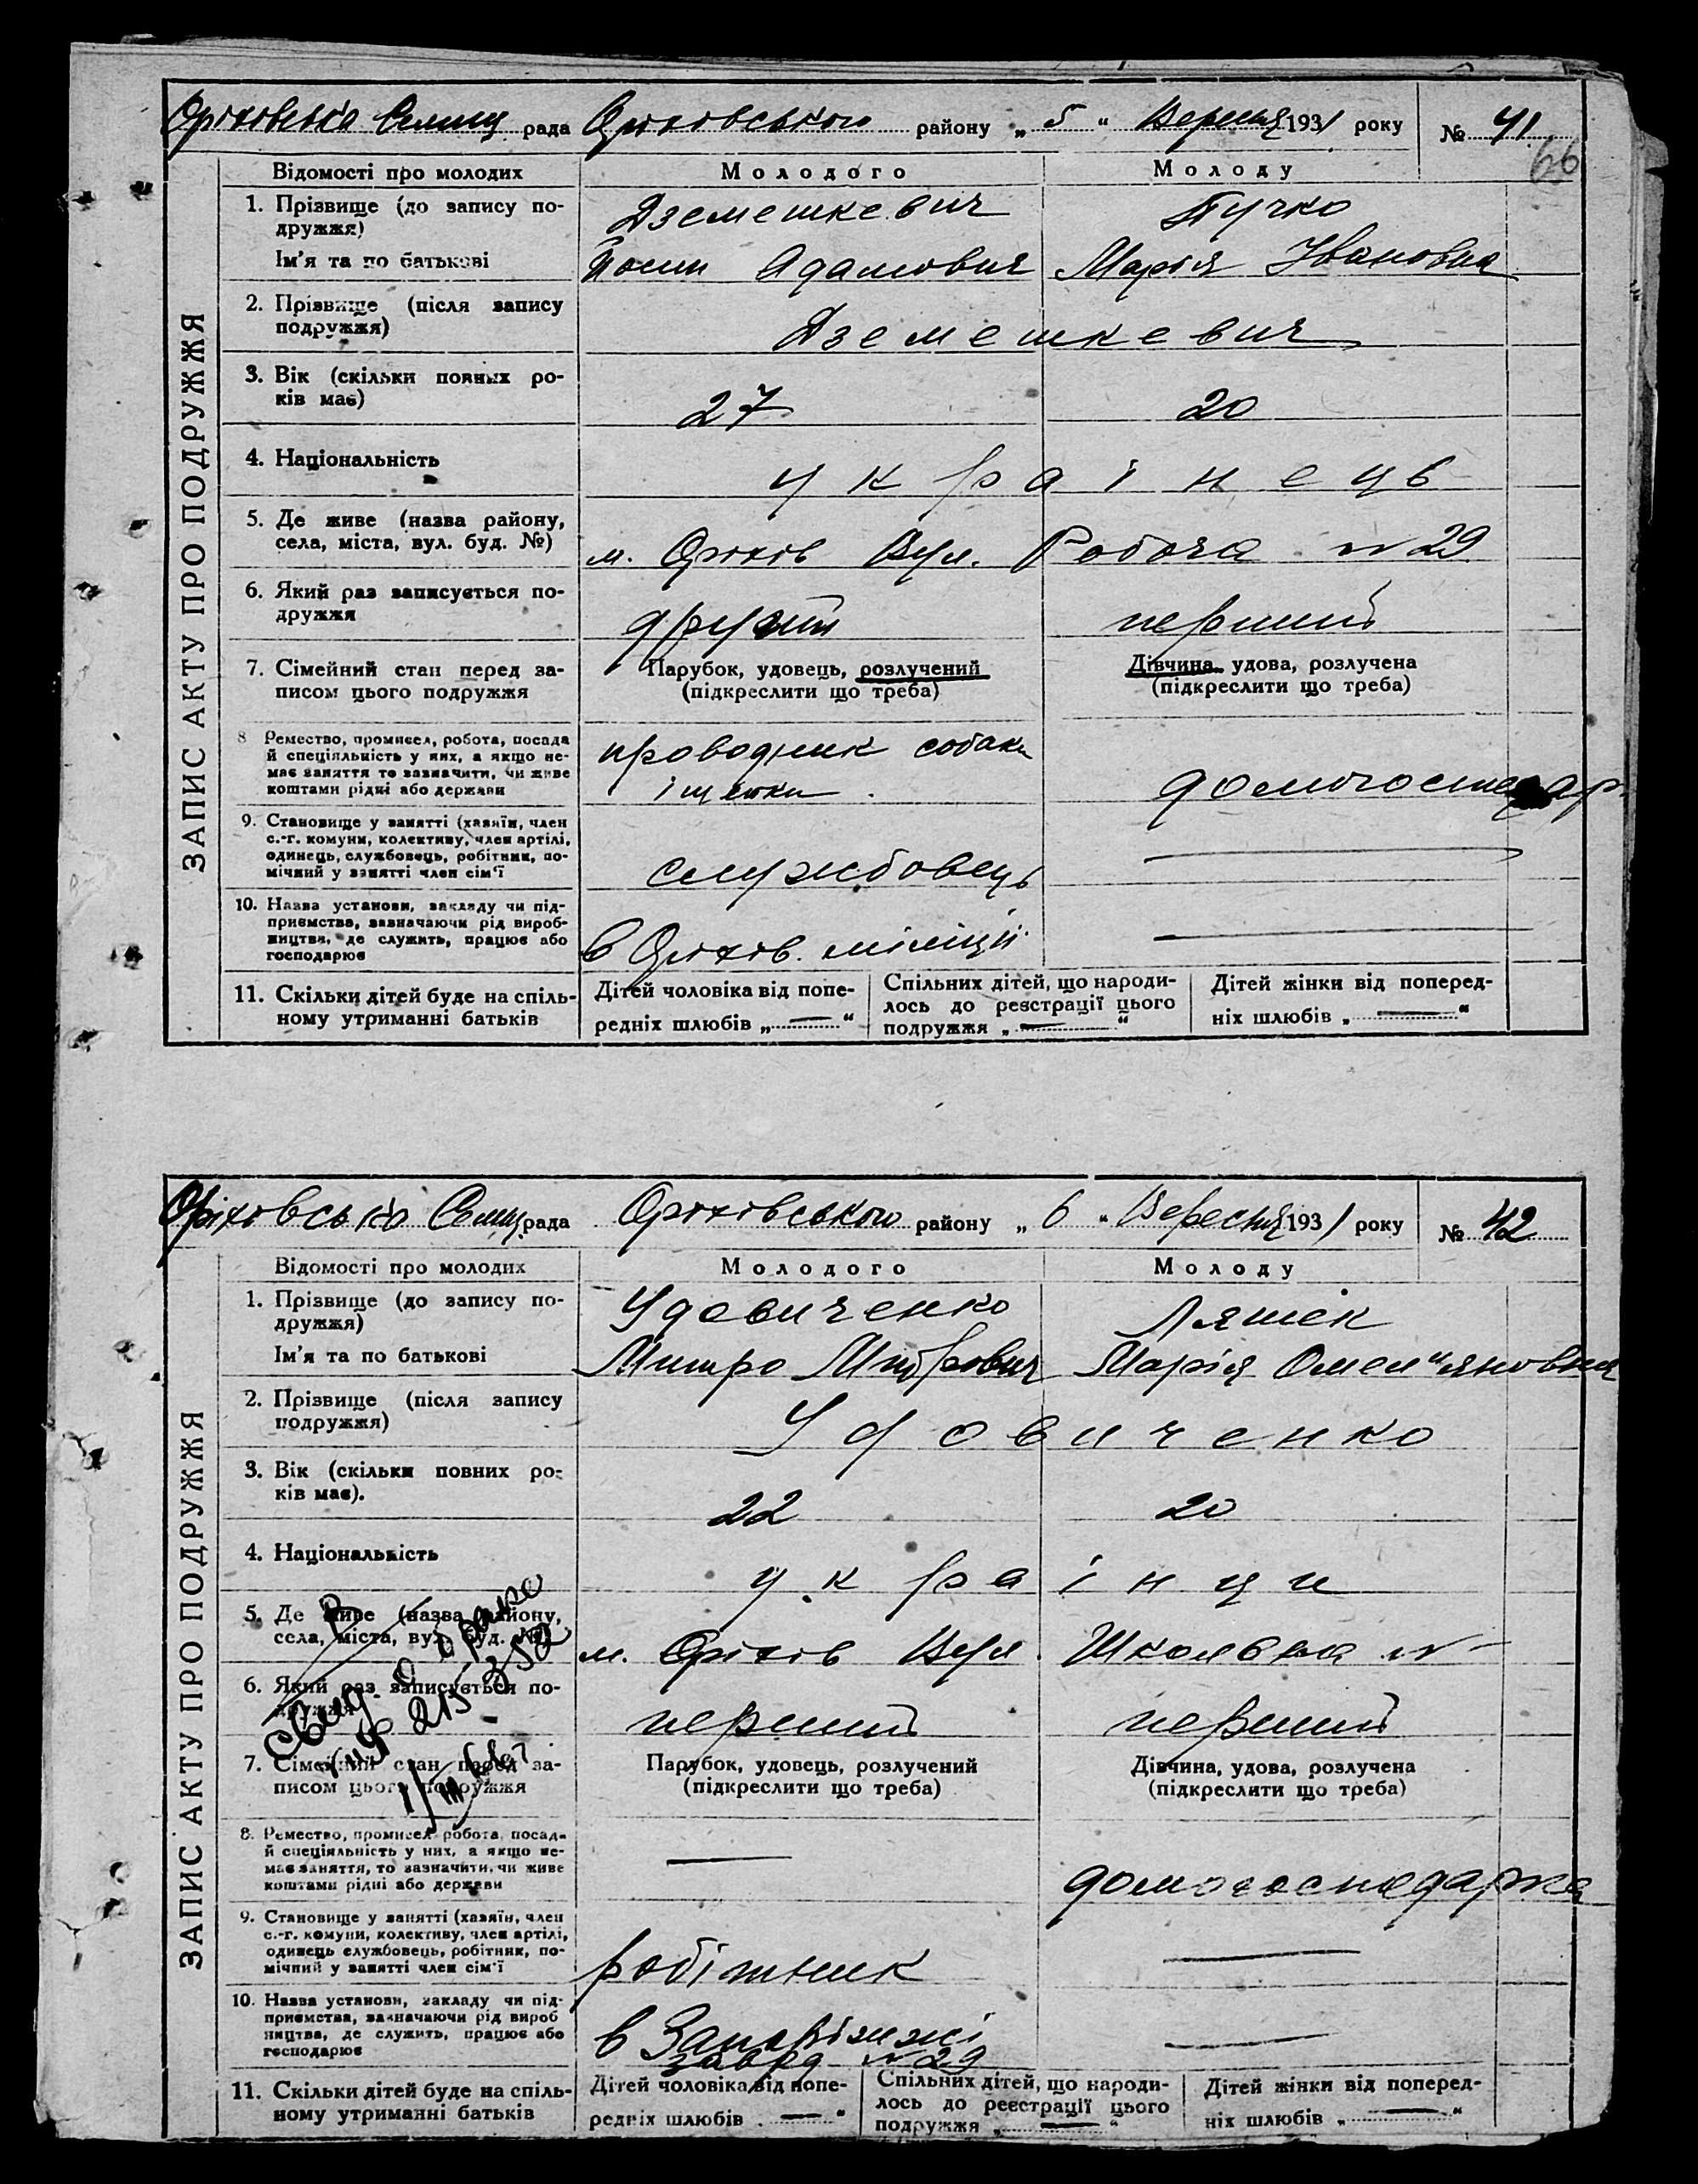 Оріховська Селищ рада Оріховського району „ 5 “ Вересня 1931 року № 41
66
ЗАПИС АКТУ ПРО ПОДРУЖЖЯ
Відомості про молодих Молодого Молоду
1. Прізвище (до запису по- Дземешкевич Пучко
дружжя)
Ім'я та по батькові Йосип Адамович Марія Івановна
2. Прізвище (після запису
подружжя) Дземешкевич
3. Вік (скільки повних ро-
ків має) 27 20
4. Національність українець
5. Де живе (назва району,
села, міста, вул. буд. №) м. Оріхів Вул. Робоча № 29
6. Який раз записується по-
дружжя другий перший
7. Сімейний стан перед за- Парубок, удовець, розлучений Дівчина, удова, розлучена
писом цього подружжя (підкреслити що треба) (підкреслити що треба)
8 Ремество, промисел, робота, посада проводник собаки
й спеціяльність у них, а якщо не-
має заняття то зазначити, чи живе іщейки домогоспадар
коштами рідні або держави
9. Становище у занятті (хазяїн, член
с.-г. комуни, колективу, член артілі,
одинець, службовець, робітник, по- службовець —
мічний у занятті член сім'ї
10. Назва установи, закладу чи під-
приємства, зазначаючи рід вироб-
ництва, де служить, працює або в Оріхів. міліції —
господарює
11. Скільки дітей буде на спіль- Дітей чоловіка від попе- Спільних дітей, що народи- Дітей жінки від поперед-
ному утриманні батьків редніх шлюбів „ — “ лось до реєстрації цього ніх шлюбів „ — “
подружжя „ — “
Оріховська Селищ. рада Оріховського району „ 6 “ Вересня 1931 року № 42
ЗАПИС АКТУ ПРО ПОДРУЖЖЯ
Відомості про молодих Молодого Молоду
1. Прізвище (до запису по- Удовиченко Ляшек
дружжя)
Ім'я та по батькові Митро Митрович Марія Омел"яновна
2. Прізвище (після запису
подружжя) Удовиченко
3. Вік (скільки повних ро-
ків має). 22 20
4. Національність українци
5. Де живе (назва району,
села, міста, вул. буд. №) м. Оріхів Вул. Школьна № –
6. Який раз записується по-
дружжя перший перший
7. Сімейний стан перед за- Парубок, удовець, розлучений Дівчина, удова, розлучена
писом цього подружжя (підкреслити що треба) (підкреслити що треба)
Свид. о браке
215352
8. Ремество, промисел робота, посада
й спеціяльність у них, а якщо не-
має заняття, то зазначити, чи живе — домогосподарка
коштами рідні або держави
9. Становище у занятті (хазяїн, член
с.-г. комуни, колективу, член артілі,
одинець службовець, робітник, по- робітник —
мічний у занятті член сім'ї
10. Назва установи, закладу чи під-
приємства, зазначаючи рід вироб
ництва, де служить, працює або в Запоріжжі —
господарює завод № 29
11. Скільки дітей буде на спіль- Дітей чоловіка від попе- Спільних дітей, що народи- Дітей жінки від поперед-
ному утриманні батьків редніх шлюбів „ — “ лось до реєстрації цього ніх шлюбів „ — “
подружжя „ — “